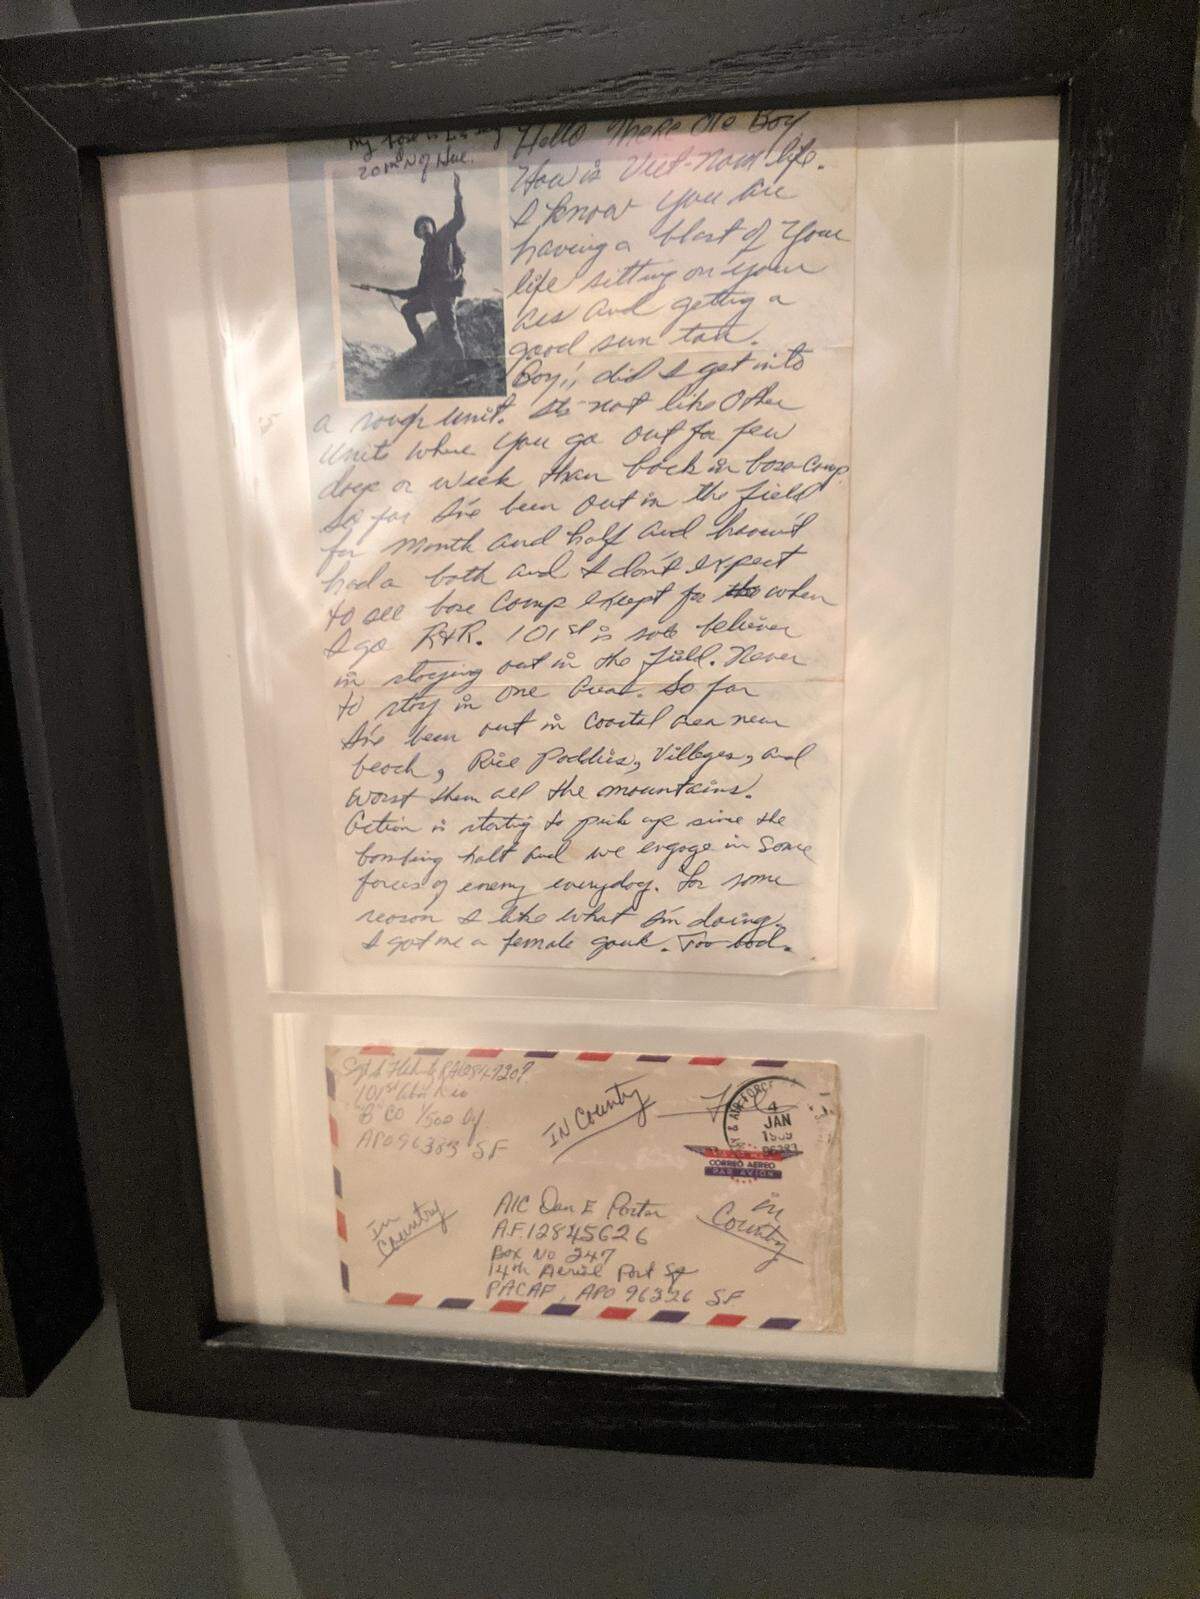 20 m N of Hue.
Hello There Ole Boy
How is Viet-Nam life.
I know you are
having a blast of your
life sitting on your
ass and getting a
good sun tan.
Boy!, did I get into
a rough unit. Its not like Other
Units where you go out for few
days or week than back in base camp
So far I've been out in the field
for month and half and haven't
had a bath and I don't expect
to see base camp except for when
I go R&R. 101st is sole believer
in staying out in the field. Never
to stay in one area. So far
I've been out in coastal area near
beach, Rice Paddies, Villages, and
worst them all the mountains.
Action is starting to pick up since the
bombing halt and we engage in some
forces of enemy everyday. For some
reason I like what I'm doing.
I got me a female gook. Too bad.
101st Abn Div
"B" CO 1/500
APO 96383 SF
IN County
4
JAN
CORREO AEREO
PAR AVION
In
Country
in
Country
A1C Dan E Porter
A.F.12845626
Box No 247
14th Aerial Port Sq
PACAF, APO 96326 SF